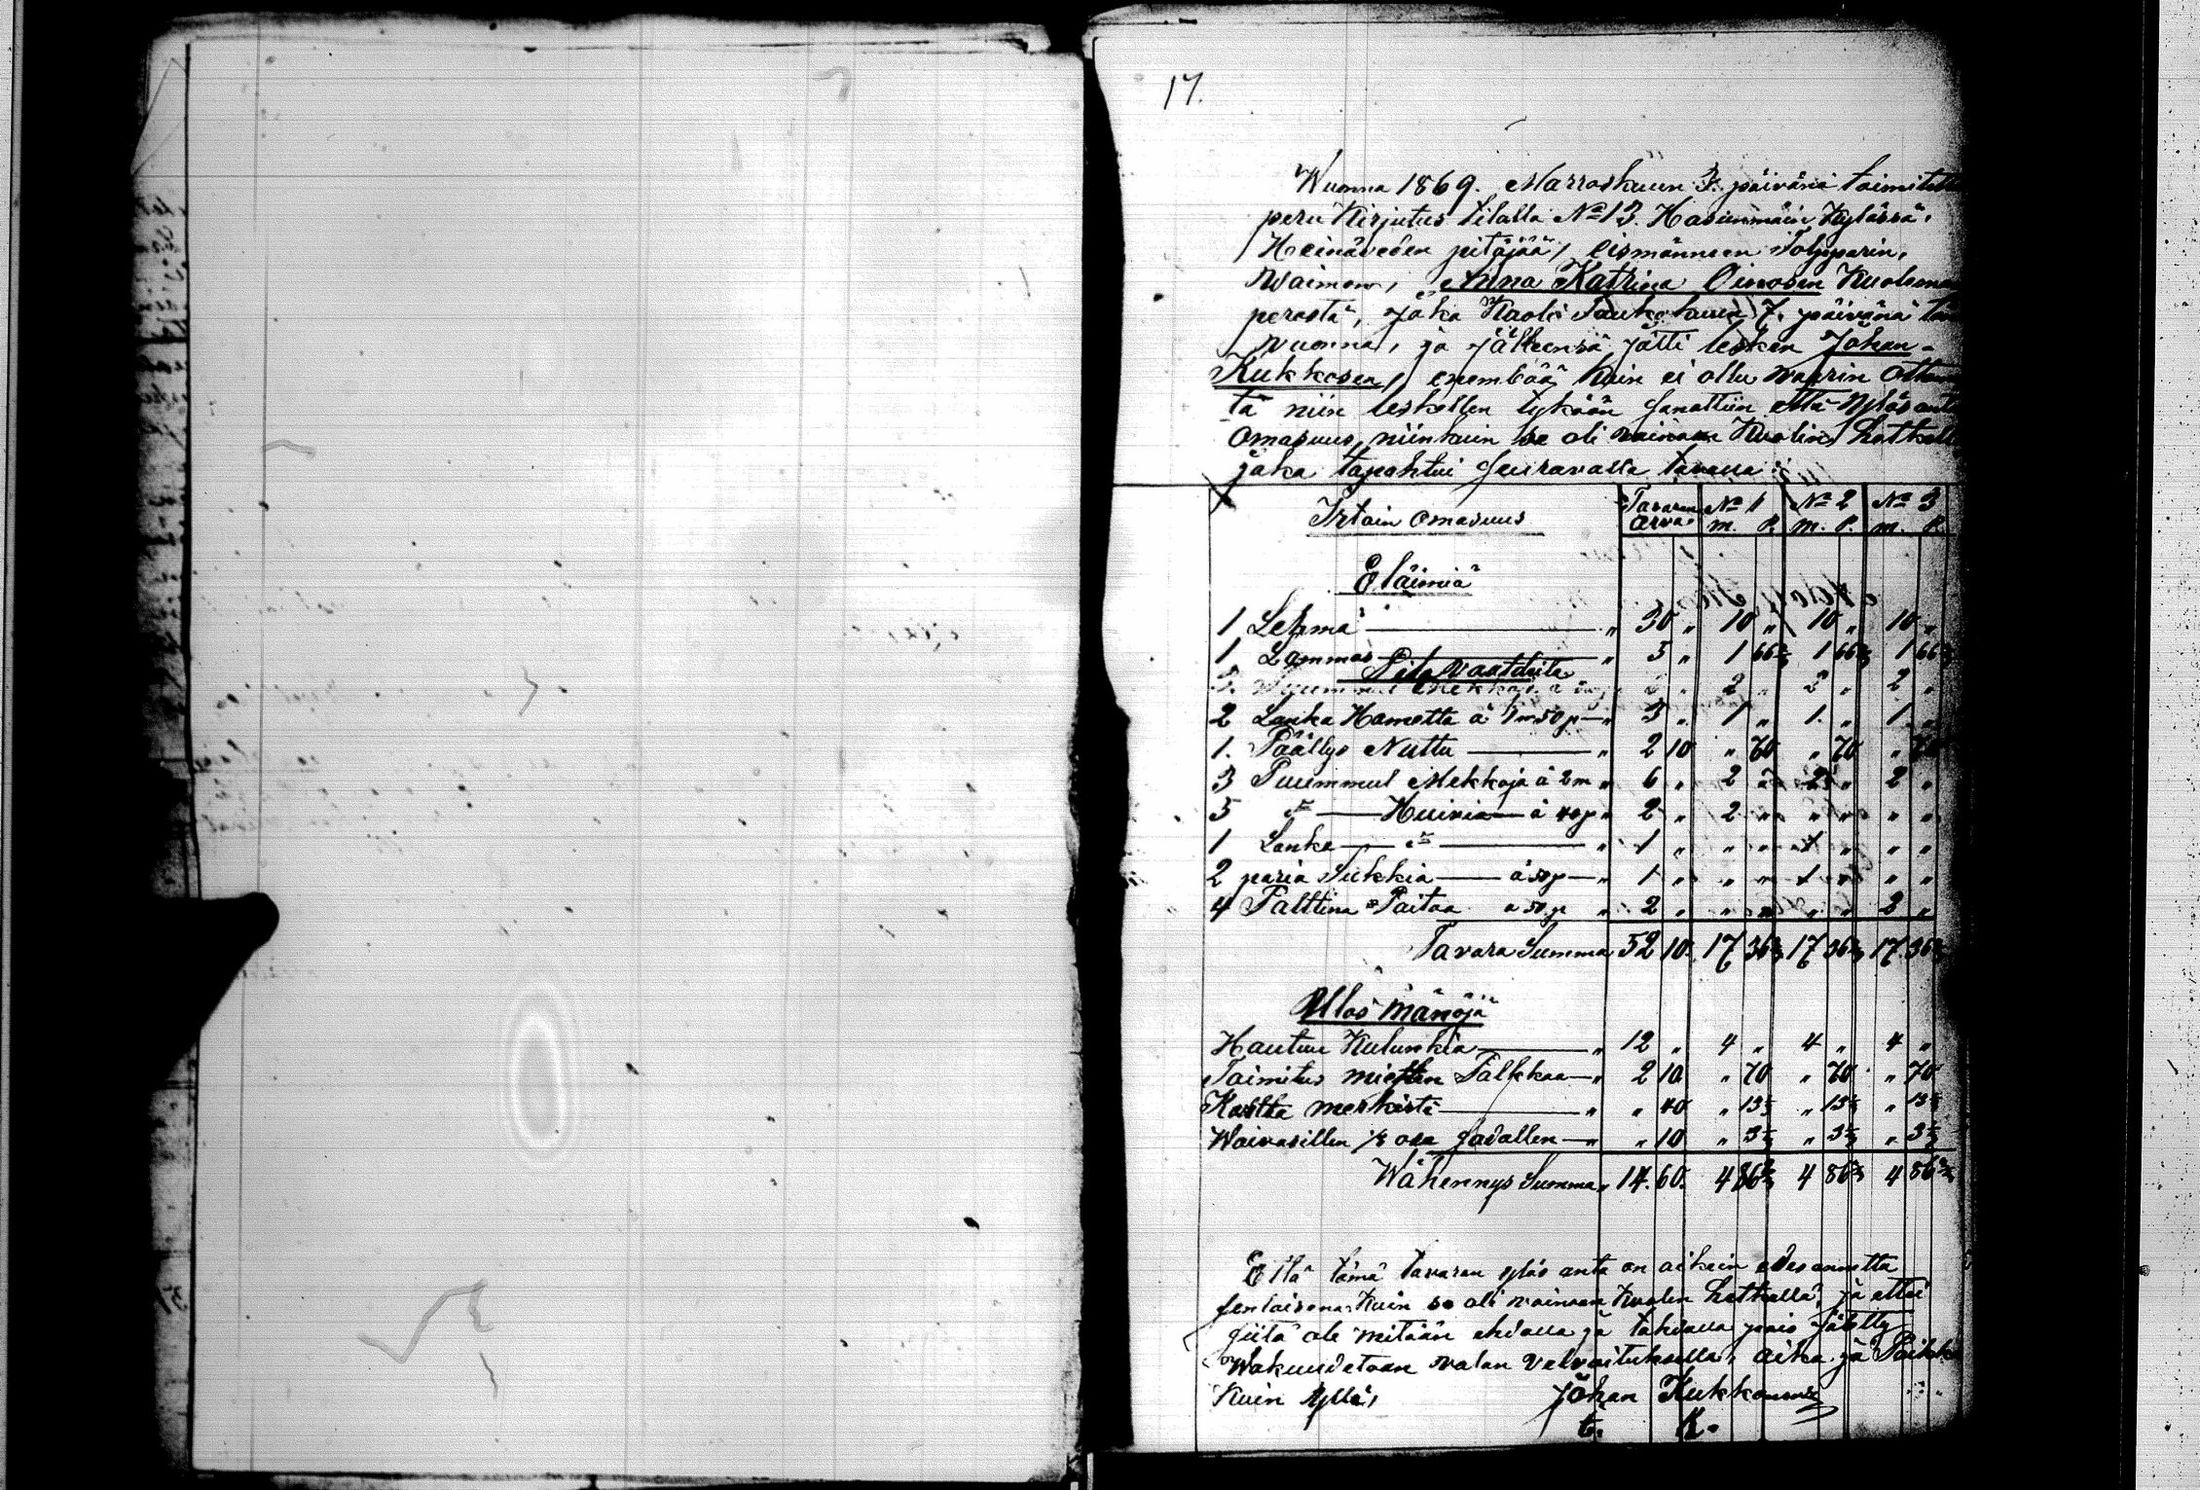 17.
Wuonna 1869. Marraskuun 3. päivänä toimitettu
peru Kirjutus tilalla No 13 Hasunmäin Kylässä,
Heinäveden pitäjää, eismännsen Tolpparin,
Waimon, Anna Katrina Oinosen Kuoleman
perästä, joka Kuoli Toukokuun 7. päivänä
vuonna, ja jälkeensä jätti lesken Johan
Kukkosen, enembää kuin ei ollu
tä niin leskellen tykään sanottiin että Ylösanta
omasuus, niinkuin se oli vainaan Kuolin hetkellä
joka tapahtui seuravalla tavalla:
Irtain omasuus Tavaran arvo No 1 No 2 No 3
m. P. m. P. m. P.
Eläimiä
1 Lehmä " 30 " 10 " 10 " 10 "
1 Lammas " 5 " 1 66 2/3 1 66 2/3 1 66 2/3
Pito vaatteita
2 " 2 " 2 "
2 Lanka Hametta á 1 m 50 p " 3 " 1 " 1 " 1 "
1. Päällys Nuttu " 2 10 " 70 " 70 " 70
3 Puummul Mekkoja á 2 m " 6 " 2 " 2 " 2 "
5 d:o Huivia á 40 p " 2 " 2 " " " " "
1 Lanka d:o " 1 " " " 1 " " "
2 paria Sukkia á 50 p " 1 " " " 1 " " "
4 Palttina Paitaa á 50 p " 2 " " " " " 2 "
Tavara Summa 52 10 17 36 2/3 17 36 2/3 17 36 2/3
Ulos mänöjä
Hautuu Kulunkia " 12 " 4 " 4 " 4 "
Toimitus miesten Palkkaa " 2 10 " 70 " 70 " 70
Kartta merkistä " " 40 " 13 1/3 " 13 1/3 " 13 1/3
Waivasillen 1/8 osa sadallen " " 10 " 3 1/3 " 3 1/3 " 3 1/3
Wähennys Summa " 14. 60. 4 86 2/3 4 86 2/3 4 86 2/3
Että tämä tavaran ylös anto on oikein edesannettu
senlaisena kuin se oli vainaan kuolin hetkellä, ja ettei
siitä ole mitään ehdolla ja tahdolla pois jätetty
Wakuudetaan valan velvoituksella, aika ja Paikka
Kuin Yllä,
Johan Kukkonen
t. K.